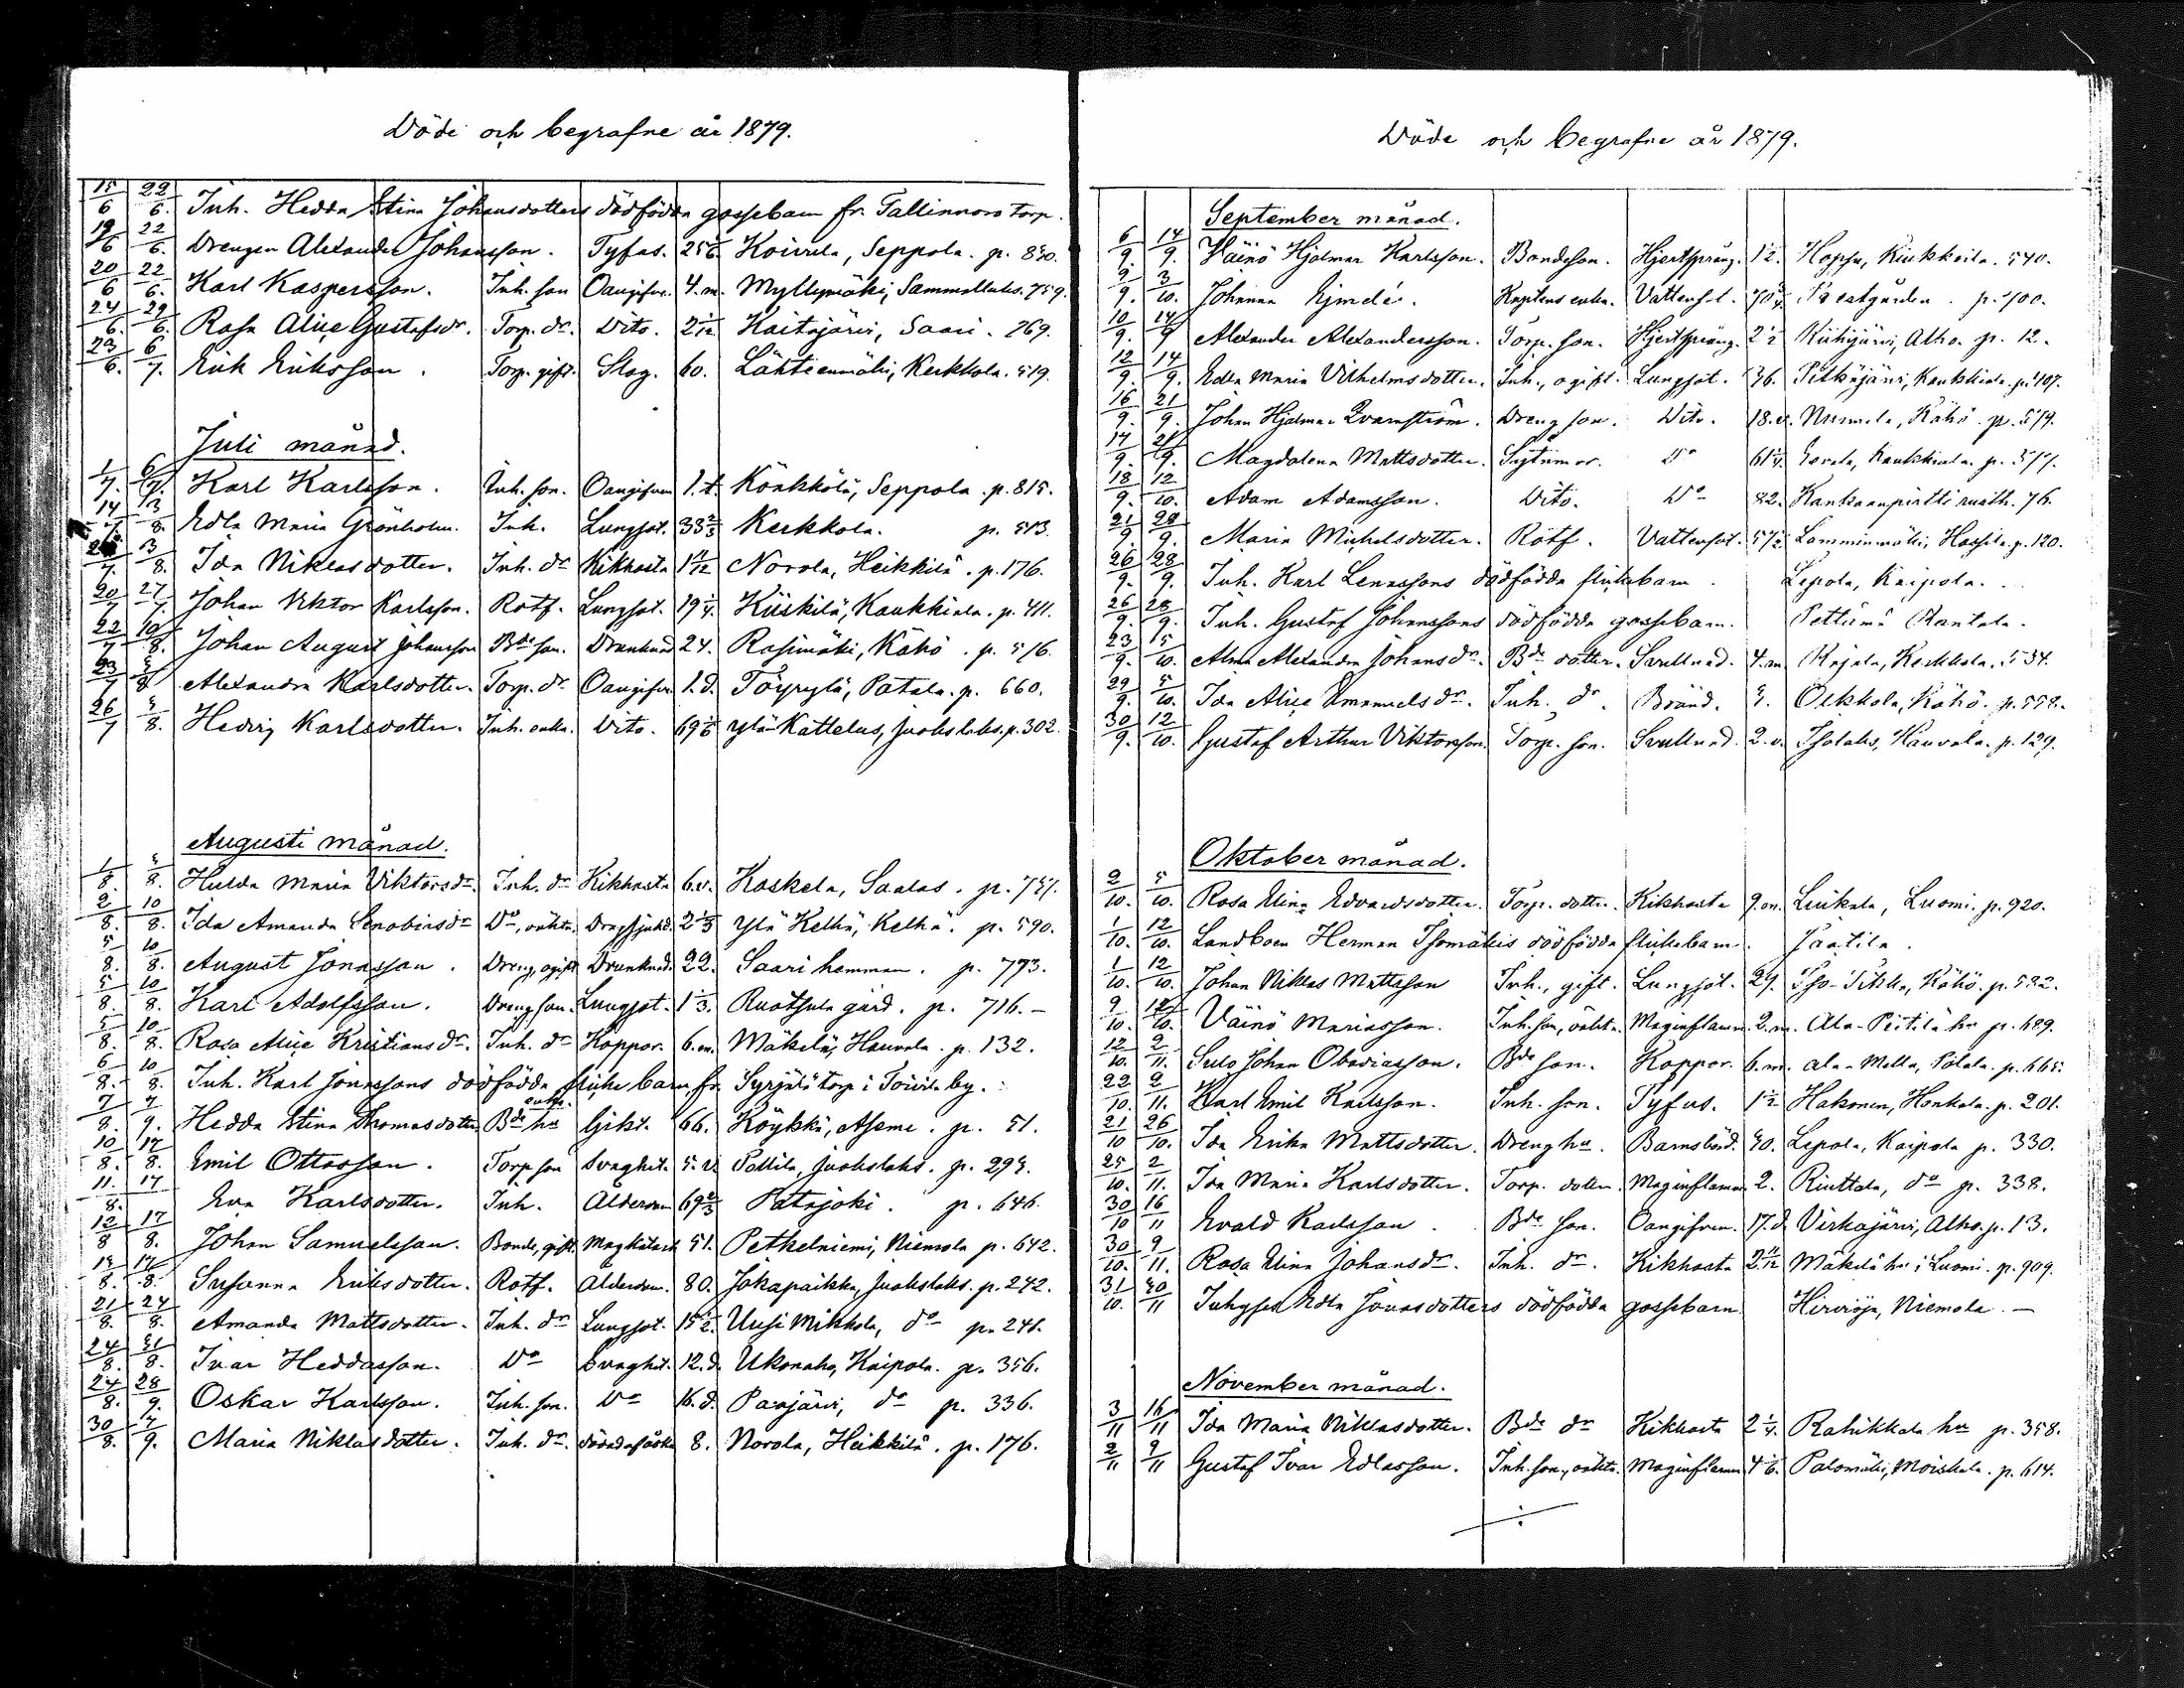 Döde och begrafne år 1879.
15/6 22/6. Inh. Hedda Stina Johansdotters dödfödda gossebarn fr. Tallinnoro torp.
19/6 22/6. Drengen Alexander Johansson. Tyfus. 25 1/6. Koivula, Seppola. p. 830.
20/6 22/6. Karl Kaspersson. Inh. son Oangifven. 4. m. Myllymäki, Sammallaks. 759.
24/6. 29/6. Rosa Alice Gustafsdr. Torp. dr. Dito. 2 1/12 Haitajärvi, Saari. 269.
23/6. 6/7. Erik Eriksson. Torp. gift. Slag. 60. Lähteenmäki, Kerkkola. 519.
Juli månad.
1/7. 6/7. Karl Karlsson. Inh. son. Oangifven 1. t. Könkkölä, Seppola. p. 815.
14/7 13/8. Edla Maria Grönholm. Inh. Lungsot. 33 2/3 Kerkkola. p. 513.
13/8. Ida Niklasdotter. Inh. dr Kikhosta 1 11/12 Norola, Heikkilä. p. 176.
20/7 27/7. Johan Viktor Karlsson. Rotf. Lungsot. 19 1/4. Kiiskilä, Kaukkiala. p. 411.
22/7 10/8. Johan August Johansson Bde son. Drunknad 24. Rasimäki, Kähö. p. 576.
23/7 3/8 Alexandra Karlsdotter. Torp. dr Oangifven. 1. d. Töyrylä, Patala. p. 660.
26/7 3/8. Hedvig Karlsdotter. Inh. enka. Dito. 69 1/6 Ylä-Kattelus, Juokslaks. p. 302.
Augusti månad.
1/8. 3/8. Hulda Maria Viktorsdr. Inh. dr Kikhosta 6. v. Koskela, Saalas. p. 757.
2/8. 10/8. Ida Amanda Senobiasdr Do, oäkta. Dragsjukd. 2 1/3 Ylä Kelhä, Kelhä. p. 590.
5/8. 10/8. August Jonasson. Dreng, ogift Drunknad. 22. Saari hemman. p. 773.
5/8. 10/8. Karl Adolfsson. Dreng son. Lungsot. 1 1/3. Ruotsula gård. p. 716. –
5/8. 10/8. Rosa Alice Kristiansdr. Inh. dr Koppor. 6. m. Mäkelä, Hauvala. p. 132.
6/8. 10/8. Inh. Karl Jonassons dödfödda flickebarn fr. Syrjälä torp i Toivila by.
7/8. 7/9. Hedda Stina Thomasdotter Bde hu enka. Gikt. 66. Köykkä, Aseme. p. 51.
10/8. 17/8. Emil Ottosson. Torp son Svaghet. 5. v. Pottila, Juokslaks. p. 295.
11./8. 17 Eva Karlsdotter. Inh. Ålderdom 69 2/3 Patajoki. p. 646.
12/8 17/8. Johan Samuelsson. Bonde, gift. Magkatarr 51. Petkelniemi, Niemola p. 642.
15/8. 17/8. Susanna Eriksdotter. Rotf. Ålderdom. 80. Jokapaikka, Juokslaks. p. 242.
21/8. 24/8. Amanda Mattsdotter. Inh. dr Lungsot. 15 1/2. Uusi Mikkola, do p. 241.
24/8. 31/8. Ivar Heddasson. Do Svaghet. 12. d. Ukonaho, Kaipola. p. 356.
24/8. 28/9. Oskar Karlsson. Inh. son. Do 16. d. Paajärvi, do p. 336.
30/8. 7/9. Maria Niklasdotter. Inh. dr. 8. Norola, Heikkilä. p. 176.
Döde och begrafne år 1879.
September månad.
6/9. 14/9. Väinö Hjalmar Karlsson. Bondeson. Hjertspräng. 1 1/2. Hopsu, Kiukkoila. 540.
9/9. 3/10. Johanna Kaptens enka. Vattensot. 70 Prestgården. p. 700.
10/9. 14/9 Alexander Alexandersson. Torp. son. Hjertspräng. 2 1/2 Riihijärvi, Alho. p. 12.
12/9. 14/9. Edla Maria Vilhelmsdotter. Inh., ogift. Lungsot. 36. Pitkäjärvi, Kaukkiala. p. 407.
16/9. 21/9. Johan Hjalmar Qvarnström. Dreng son. Dito. 18. v. Nurmela, Kähö. p. 579.
17/9. 21/9. Magdalena Mattsdotter. Sytn. Do 61 Eerola, Kaukkiala. p.
18/9. 12/10. Adam Adamsson. Dito. Do 82. Kankaanpirtti rusth. 76.
21/9. 28/9. Maria Michelsdotter. Rotf. Vattensot. 57 1/2 Lamminmäki, Hassila. p. 120.
26/9. 28/9. Inh. Karl Lenassons dödfödda flickebarn. Lepola, Kaipola.
26/9. 28/9. Inh. Gustaf Johanssons dödfödda gossebarn. Pettämä Rantala.
23/9. 15/10. Alma Alexandra Johansdr. Bde dotter. Svullnad. 4. m. Rajala, Kerkkola. 534.
29/9. 5/10. Ida Alice Emanuelsdr. Inh. dr. Bränd. 3. Oikkola, Kähö. p. 558.
30/9. 12/10. Gustaf Arthur Viktorsson. Torp. son. Svullnad. 2. v. Isolaks, Hauvala. p. 129.
Oktober månad.
2/10. 5/10. Rosa Elina Edvardsdotter. Torp. dotter. Kikhosta 9. m. Liukala, Luomi. p. 920.
1/10. 12/10. Landboen Herman Isomäkis dödfödda flickebarn. Jäätilä.
1/10. 12/10. Johan Niklas Mattsson Inh., gift. Lungsot. 29. Iso-, Kähö. p. 582.
9/10. 12/10. Väinö Mariasson. Inh. son, oäkta. Maginflamm 2. m. Ala-Pietilä hn p. 689.
12/10. 2/11. Sulo Johan Obadiasson. Bde son. Koppor. 6. m. Ala-Mella, Pätälä. p. 665.
22/10. 2/11. Karl Emil Karlsson. Inh. son. Tyfus. 1 1/2 Hakonen, Honkala. p. 201.
21/10 26/10. Ida Erika Mattsdotter. Dreng hu. Barnsbörd. 40. Lepola, Kaipola p. 330.
25/10. 2/11. Ida Maria Karlsdotter. Torp. dotter. Maginflamm 2. Riuttala, do p. 338.
30/10 16/11 Evald Karlsson. Bde son. Oangifven. 17. d. Virkajärvi, Alho. p. 13.
30/10. 9/11. Rosa Elina Johansdr. Inh. dr. Kikhosta 2 11/12 Mäkelä hn i Luomi. p. 909.
31/10. 30/11 Inhysen Edla Jonasdotters dödfödda gossebarn. Hirvioja, Niemola. –
November månad.
3/11 16/11 Ida Maria Niklasdotter. Bde dr Kikhosta 2 1/4. Rahikkala hn p. 358.
2/11 9/11 Gustaf Ivar Edlasson. Inh. son, oäkta. Maginflamm 4 1/6. Palomäki, Moiskala. p. 614.